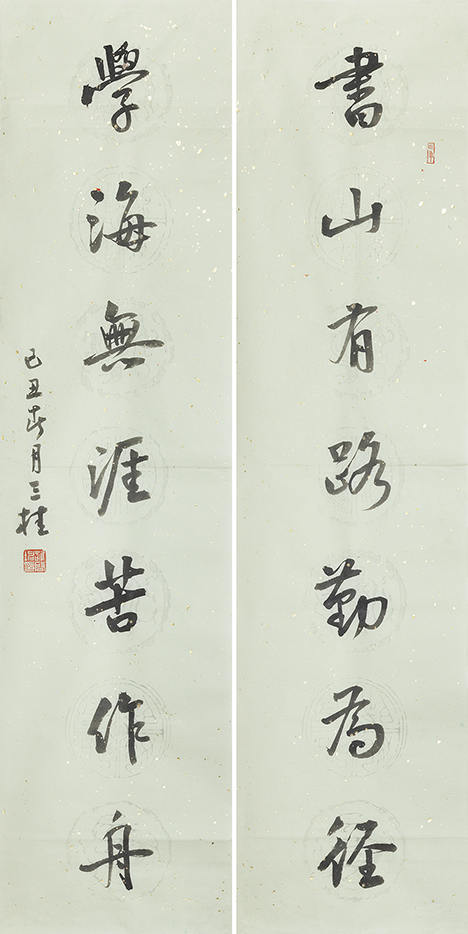 書山有路勤為徑
學海無涯苦作舟
己丑春月三桂